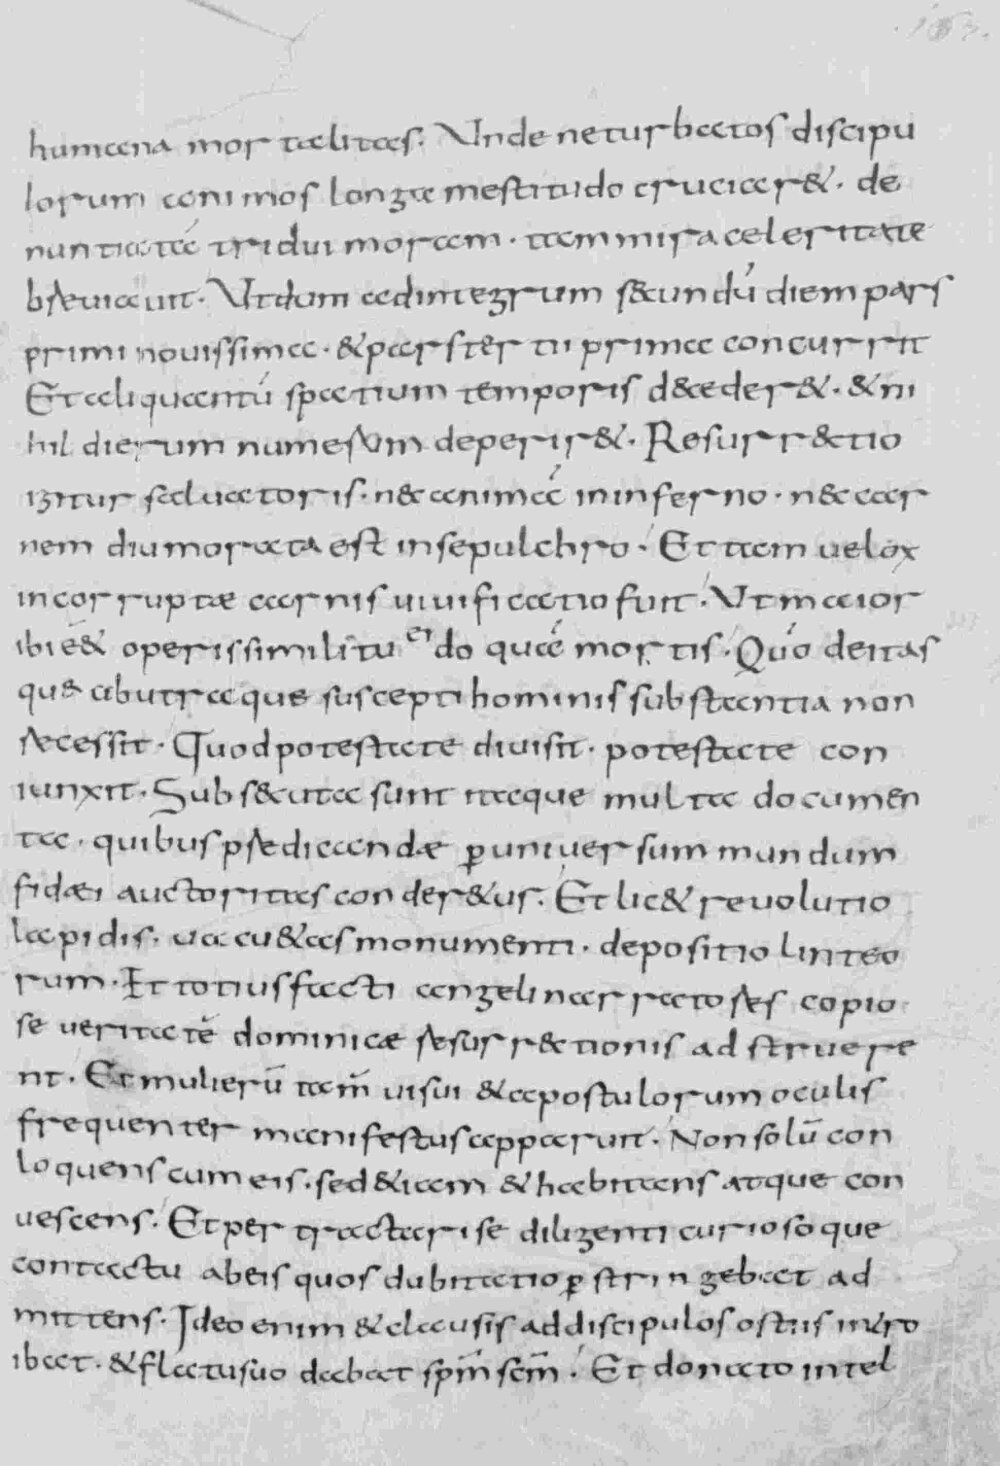 humana mortalitas. Unde ne turbatos discipu
lorum animos longa mestitudo cruciar&. de
nuntiatá tridui moram. tam mira celeritate
breuiauit. Ut dum ad integrum s&cundū diem pars
primi nouissima. & pars tertii prima concurrit
Et aliquantū spatium temporis d&ceder&. & ni
hil dierum numerum deperir&. Resurr&tio
igitur saluatoris. n&c animā in inferno. n&c car
nem diu morata est in sepulchro. Et tam uelox
incorruptae carnis uiuificatio fuit. Ut maior
ibi é& operis similitudo quā mortis. Quō deitas
que ab utraque suscepti hominis substantia non
recessit. Quod potestate diuisit. potestate con
iunxit. Subs&cuta sunt itaque multa documen
ta. quibus predicandae ꝑ uniuersum mundum
fidaei auctoritas conder&ur. Et lic& reuolutio
lapidis. uacu&as monumenti. depositio linteo
rum. Et totius facti angeli narratores copio
se ueritatē dominicae resurr&tionis adstruere
nt. Et mulierū tam̄ uisui & apostulorum oculis
frequenter manifestus apparuit. Non solū con
loquens cum eis. sed &iam & habitans atque con
uescens. Et pertractari se diligenti curiosoque
contactu ab eis quos dubitatio ꝑstringebat ad
mittens. Ideo enim & clausis ad discipulos ostiis intro
ibat. & flatu suo dabat spm̄ scm̄. Et donato intel